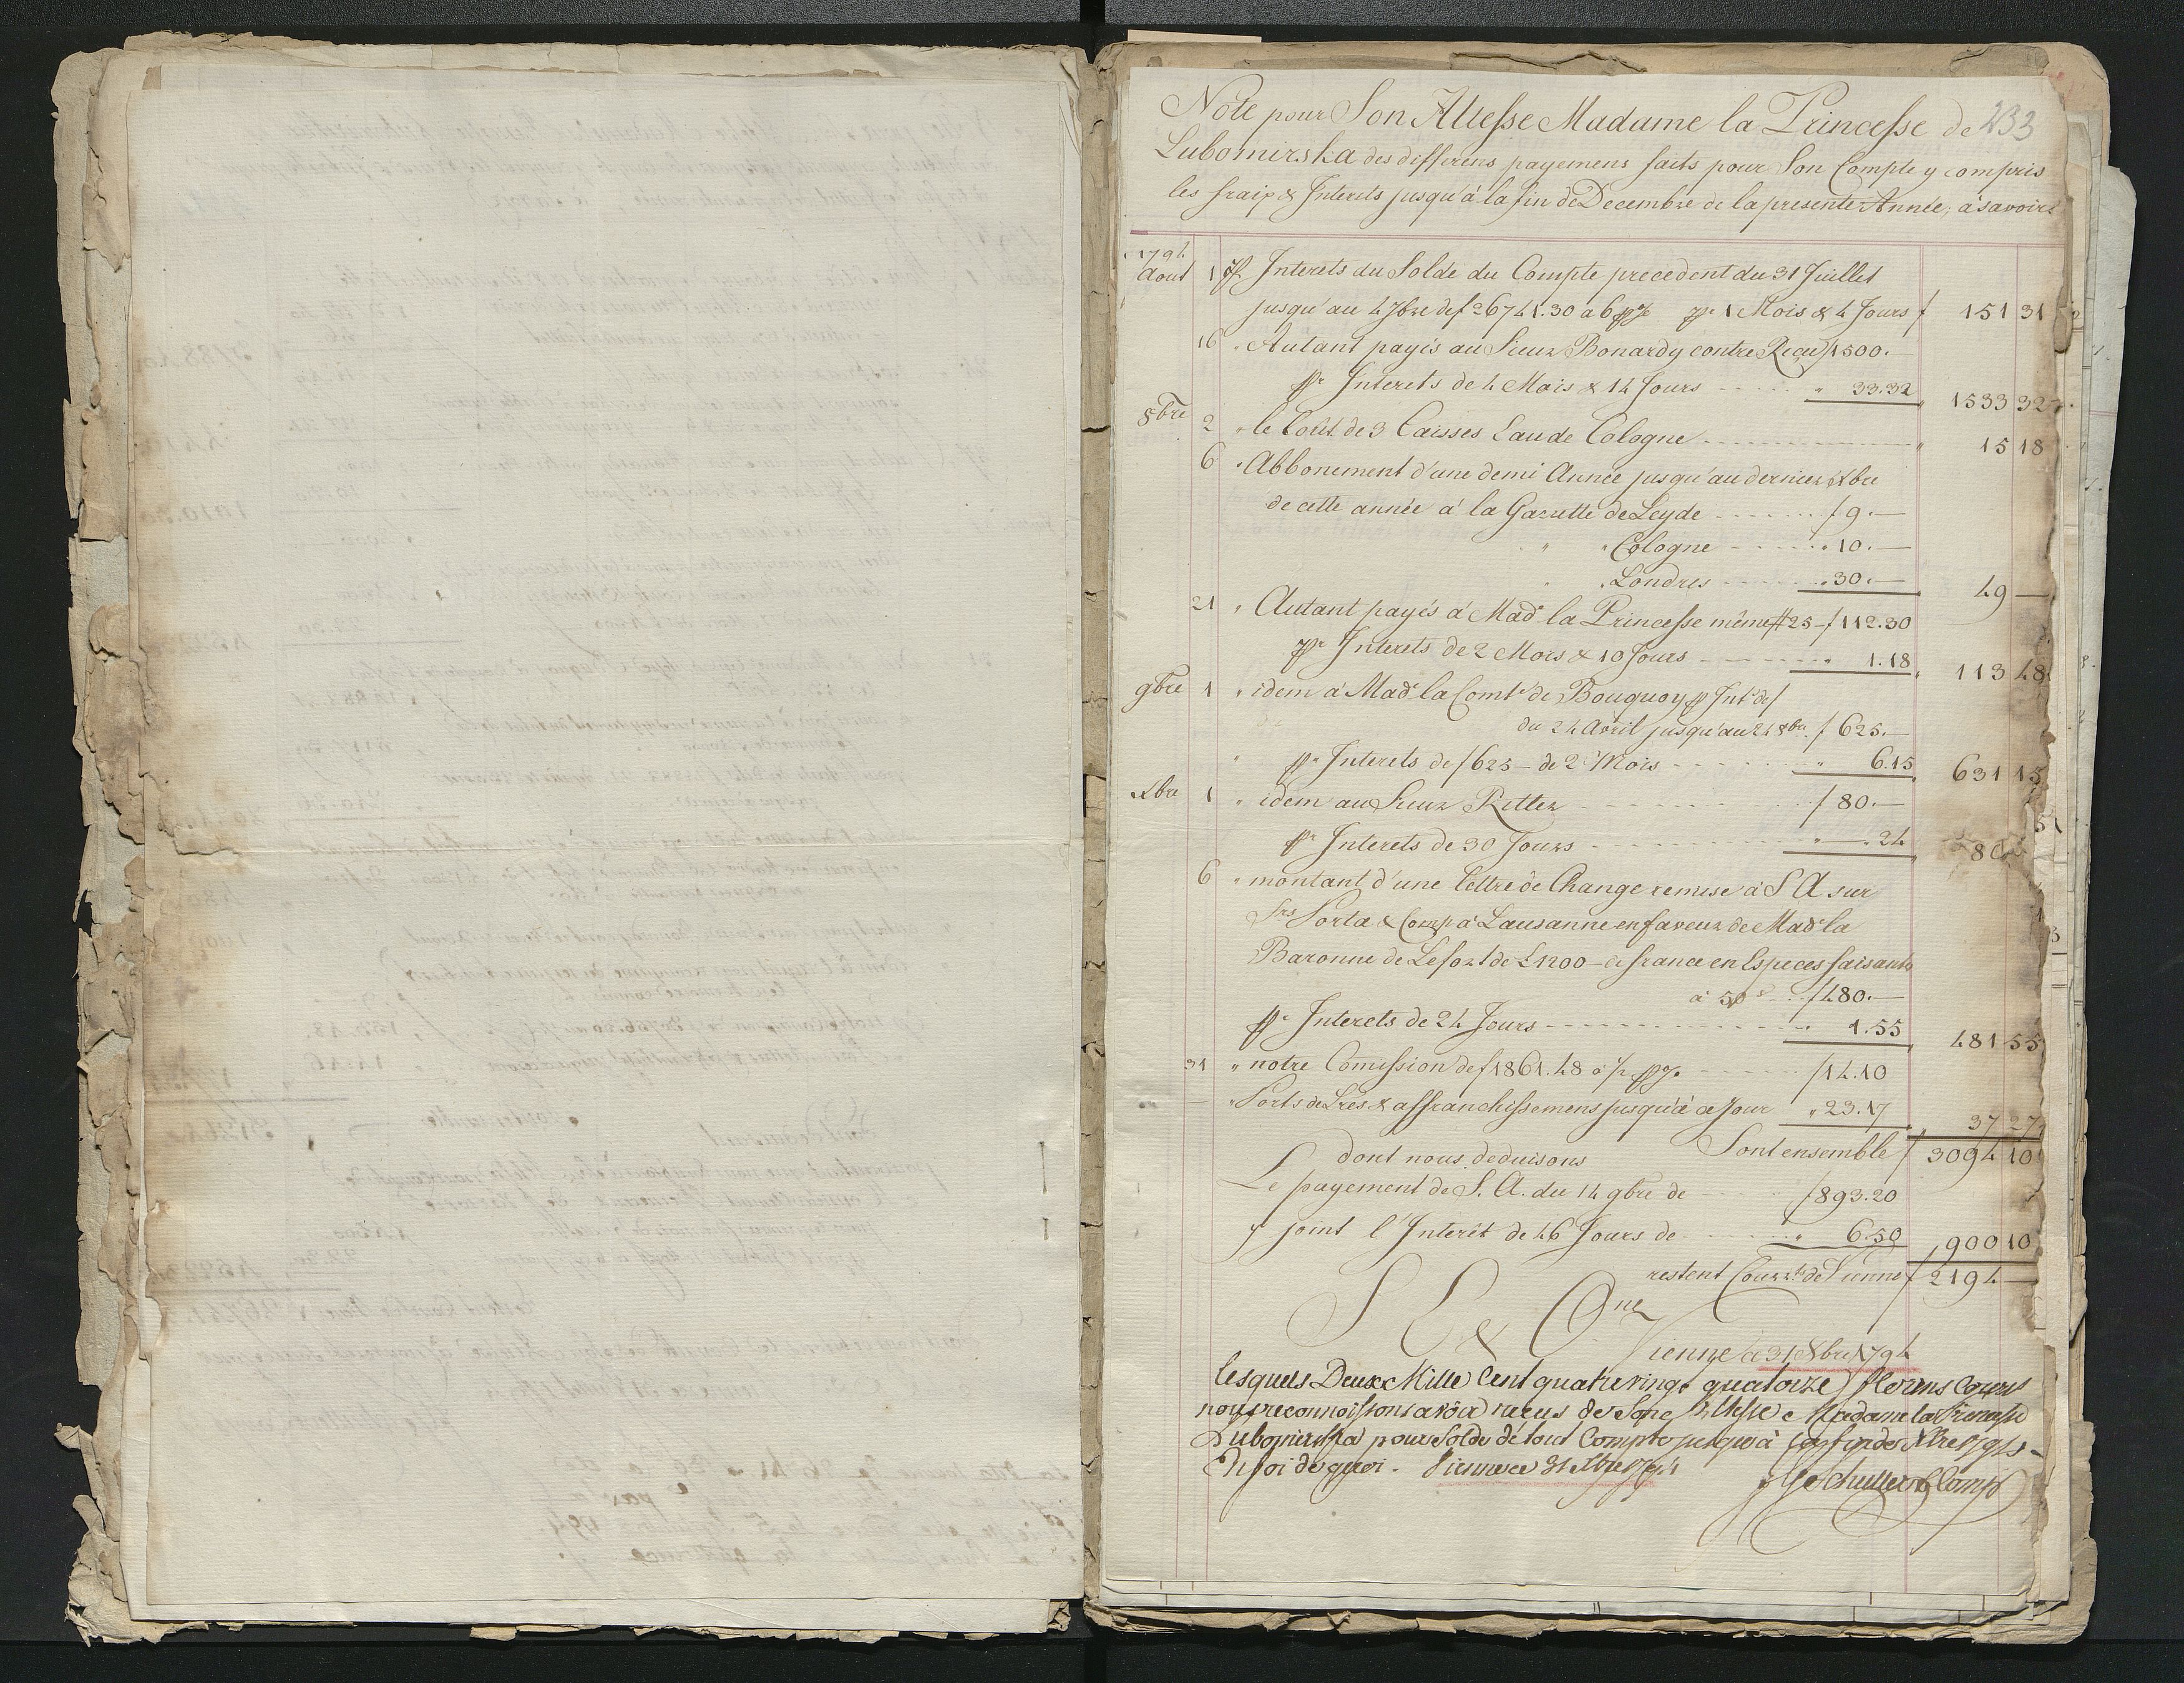 233
Note pour Son Altesse Madame la Princesse de
Lubomirska des differens payemens faits pour Son Compte y compris
les fraix & Interets jusqu'à la fin de Decembre de la presente Année, à savoir
1794
Aout 1 pr Interets du Solde du Compte precedent du 31 Juillet
jusqu'au 4 7bre de f 26741.30 a 6 p% pr 1 Mois & 4 Jours f 151 31
16 " Autant payés au Sieur Bonardy contre Recu f 1500.—
pr Interets de 4 Mois & 14 Jours " 33.32 " 1533 32
8bre 2 " le Coût de 3 Caisses Eau de Cologne " 15 18
6 " Abbonement d'une demi Année jusqu'au dernier Xbre
de cette année à la Gazette de Leyde f 9.—
" " Cologne " 10.—
" " Londres " 30.— 49 —
21 " Autant payés à Made la Princesse même # 25 — f 112.30
pr Interets de 2 Mois & 10 Jours " 1.18 " 113 48
9bre 1 " idem à Made la Comte de Bouquoy p Int. de f
du 24 Avril jusqu'au 24 8bre f 625.—
" pr Interets de f 625 — de 2 Mois " 6.15 " 631 15
Xbre 1 " idem au Sieur Ritter f 80.—
pr Interets de 30 Jours " —.24 " 80
6 " montant d'une lettre de Change remise à S A sur
Frs Porta & Comp à Lausanne en faveur de Made la
Baronne de Lefort de £ 1200 — de france en Especes faisant
à 50 f 480.—
pr Interets de 24 Jours " 1.55 " 481 55
31 " notre Comission de f 1861.48 a p% f 14.10
— " Ports de Lres & affranchissemens jusqu'à ce Jour " 23.17 37 27
Sont ensemble f 3094 10
dont nous deduisons
Le payement de S. A. du 14 9bre de f 893.20
y joint l'Interêt de 46 Jours de " 6.50 " 900 10
restent Courrt de Vienne f 2194 —
S E & O
Vienne ce 31 Xbre 1794
lesquels Deux Mille Cent quatre vingt quatorze florins Cour
nous reconnoissons avoir recus de Son Altesse Madame la Princesse
Lubomirska pour Solde de tout Compte jusqu'à la fin de Xbre 1794 -
En foi de quoi. Vienne ce 31 Xbre 1794
Schuller & Comp